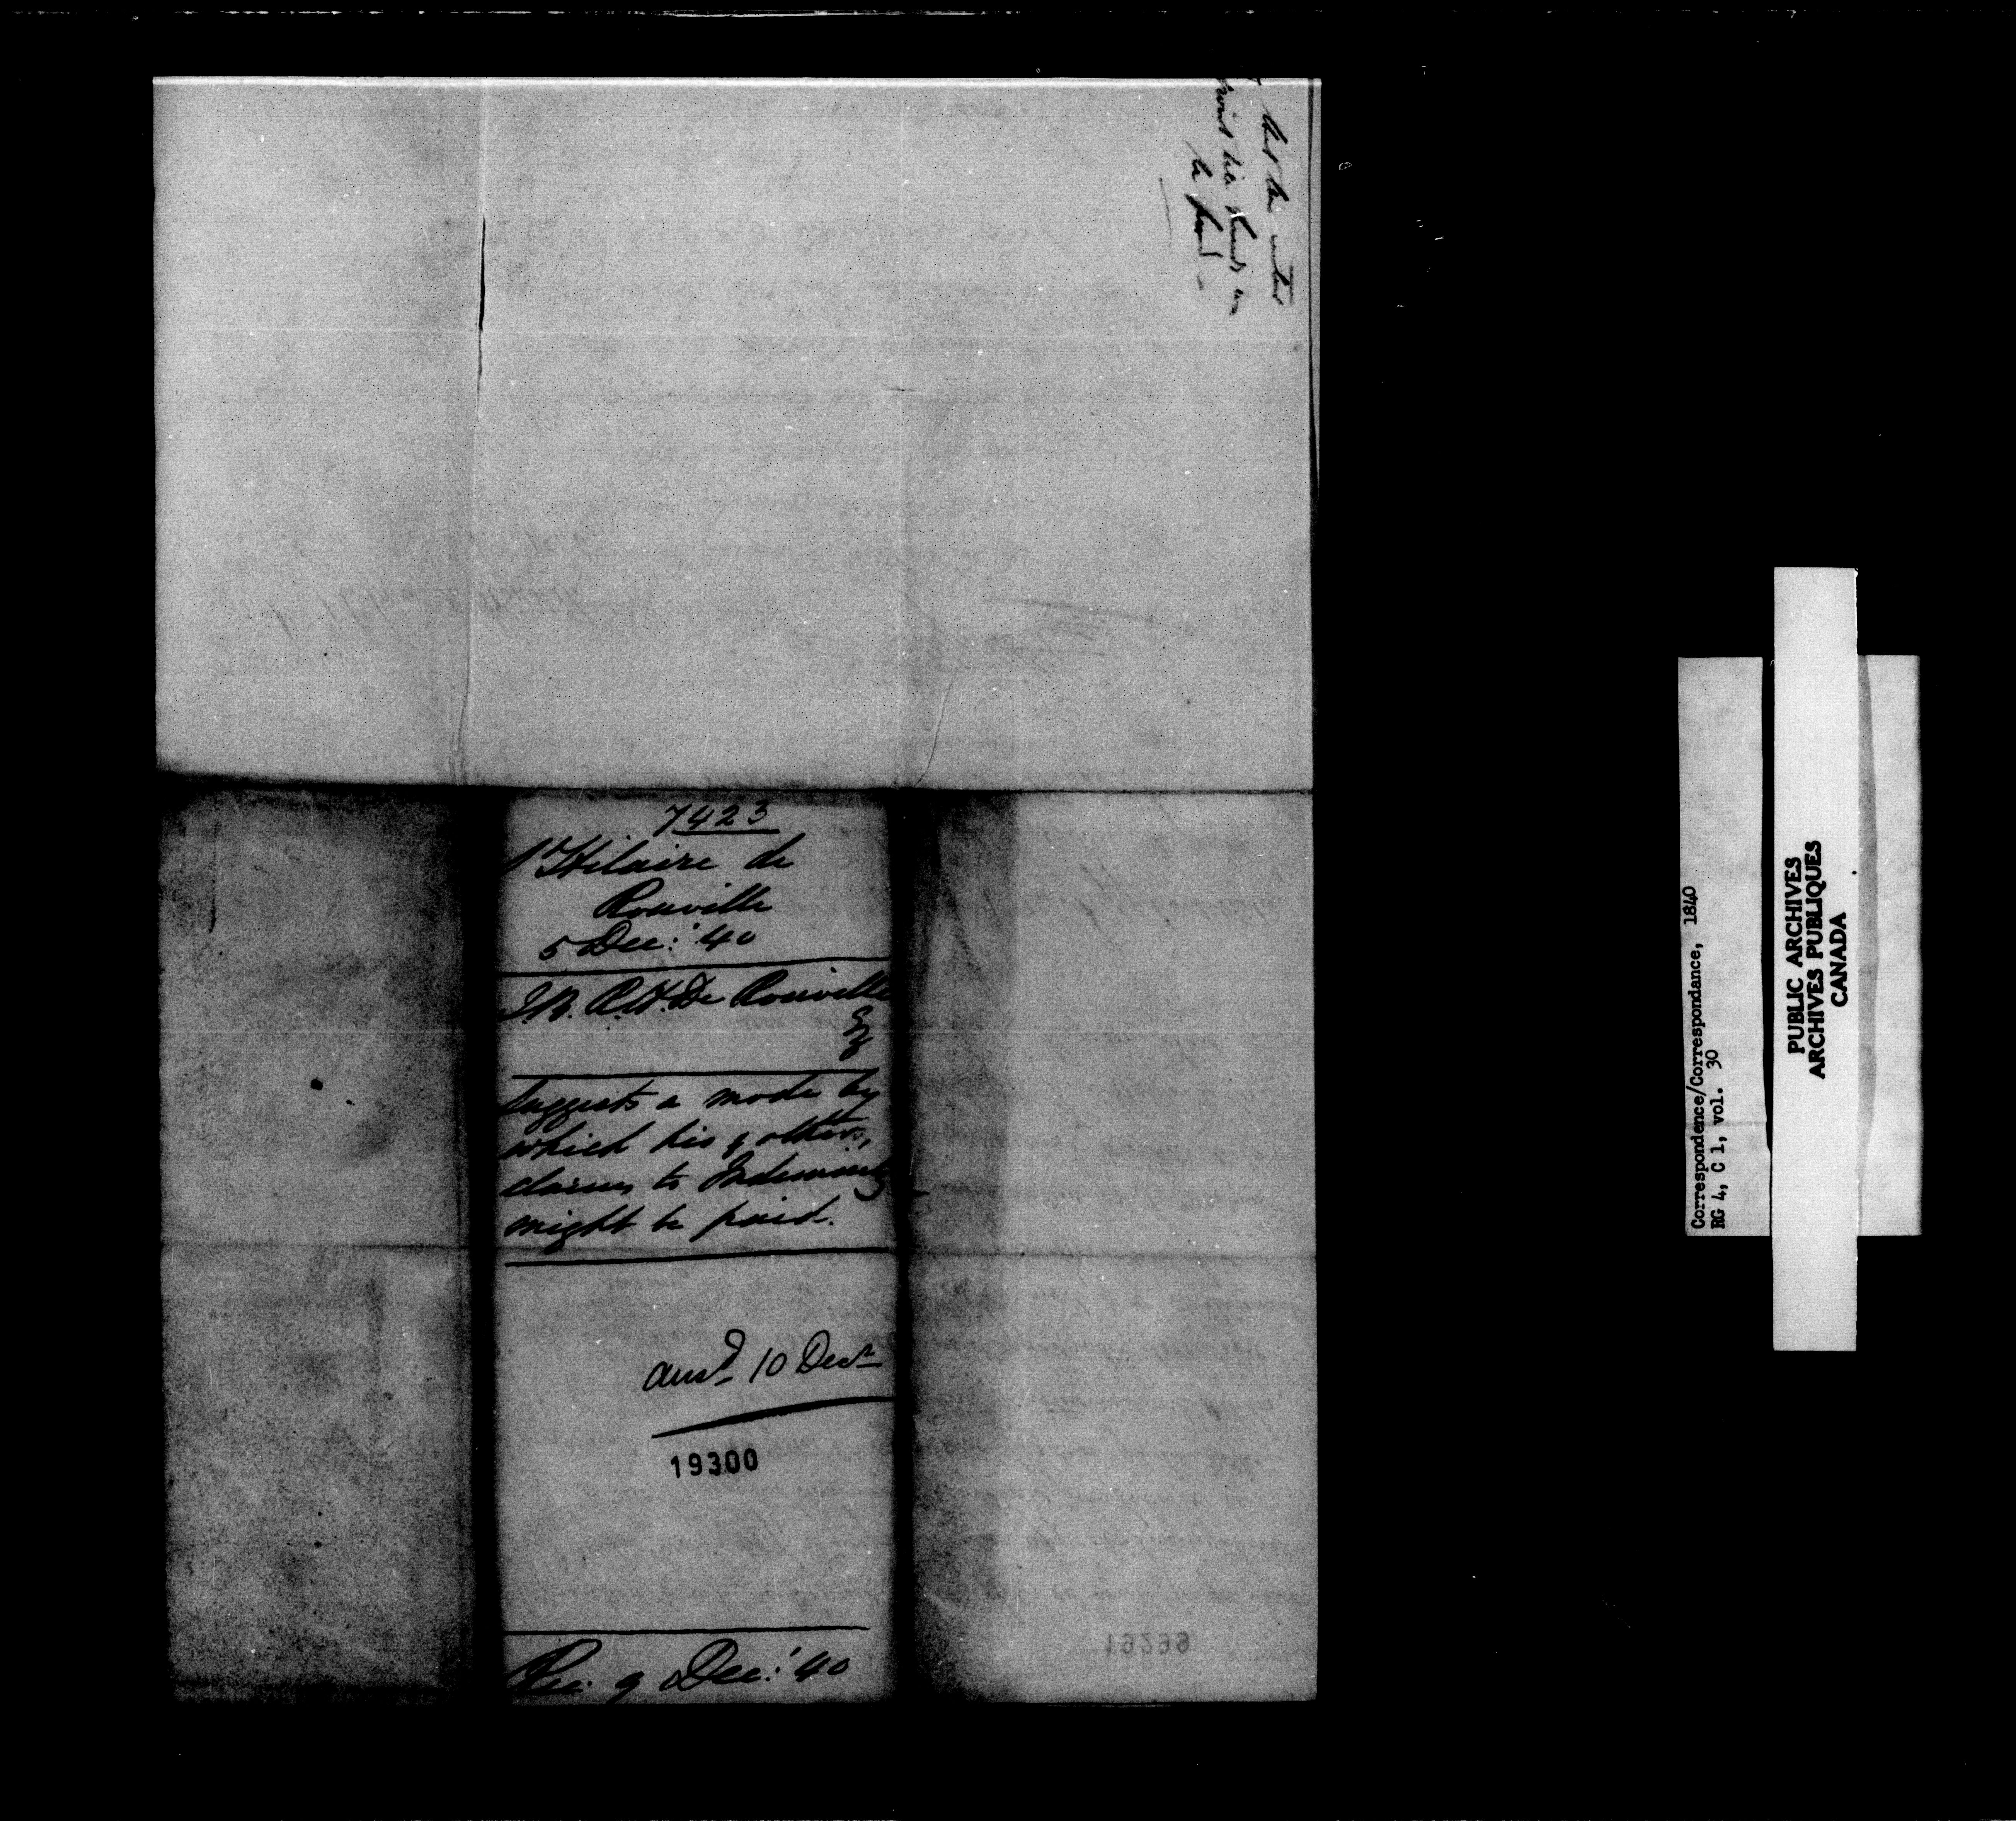 7423
St Hilaire de
Rouville
5 Dec: '40
J.B. R.H. De Rouville
Esq
Suggests a mode by
which his & others,
claims to Indemnity
might be paid.
ansd 10 Decr
19300
Rec. 9 Dec: '40
19299
Correspondence/Correspondance, 1840
RG 4, C 1, vol. 30
PUBLIC ARCHIVES
ARCHIVES PUBLIQUES
CANADA